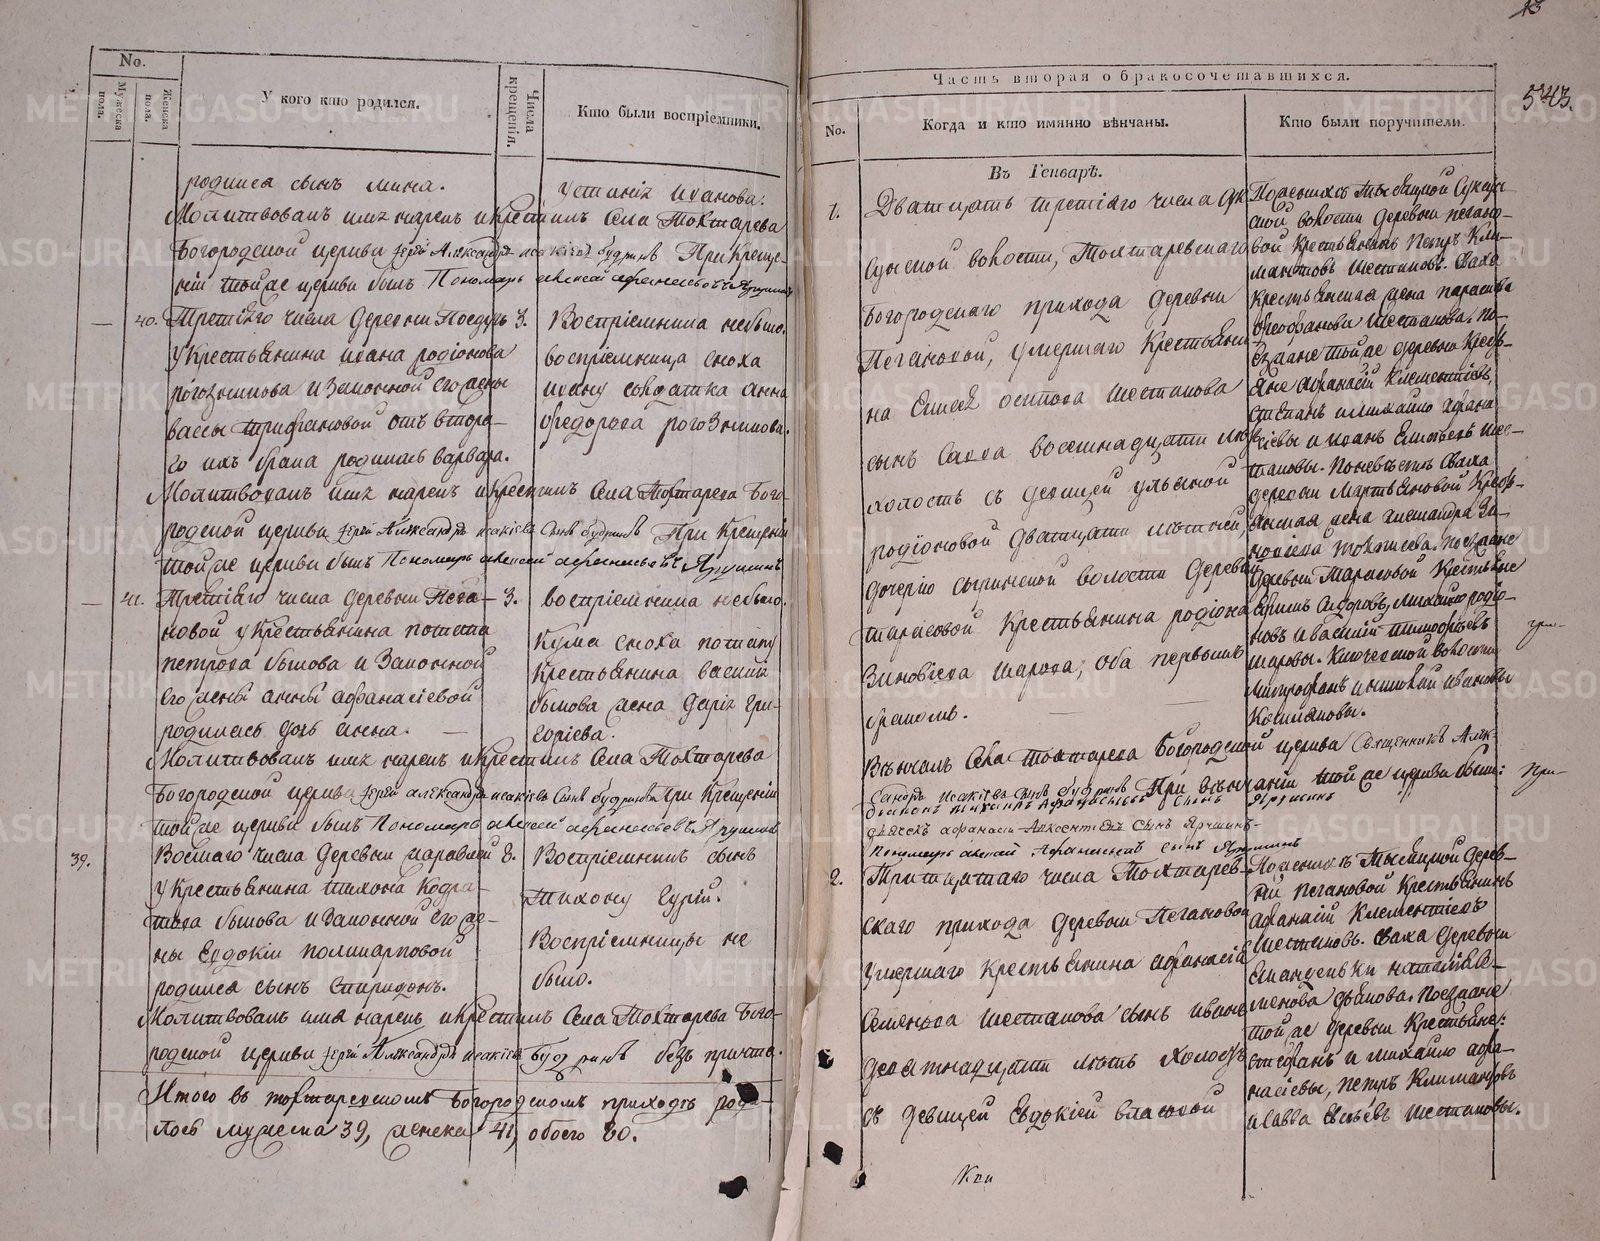 No.
Мужеска пола.
Женска пола.
У кого кто родился.
Числа крещенія.
Кто были воспріемники.
родился сынъ мина.
устанія иванова.
Молитвовалъ имя нарекъ и крестилъ села Тохтарева
Богородской церкви Іерей Александръ исакіевъ будринъ При Креще-
ніи той же церкви былъ Пономарь алексей афанасьевъ Ярушинъ
40. Третіяго числа деревни Посадъ 3. Воспріемника небыло.
у Крестьянина ивана родіонова
воспріемница сноха
рогозникова и законной его жены
ивану солдатка анна
вассы трифановой отъ второ-
ѳедорова рогозникова.
го ихъ брака родилась варвара.
Молитвовалъ имя нарекъ и крестилъ села Тохтарева Бого-
родской церкви Іерей Александръ исакіевъ Сынъ будринъ При Крещеніи
той же церкви былъ Пономарь алексей афанасьевъ Ярушинъ
41. Третіяго числа деревни Пега- 3. воспріемника небыло.
новой у Крестьянина потапа
Кума сноха потапу
петрова быкова и законной
Крестьянина василія
его жены анны афанасіевой
быкова жена дарія гри-
родилась дочь анна.
горіева.
Молитвовалъ имя нарекъ и крестилъ села Тохтарева
Богородской церкви Іерей александръ исакіевъ Сынъ будринъ При Крещеніи
той же церкви былъ Пономарь алексей афанасьевъ Ярушинъ
39. Восмаго числа деревни 8. Воспріемникъ сынъ
у Крестьянина тихона Кодра-
Тихону Гурій.
това быкова и законной его же-
Воспріемницы не
ны Евдокіи поликарповой
было.
родился сынъ Спиридонъ.
Молитвовалъ имя нарекъ и крестилъ села Тохтарева Бого-
родской церкви Іерей Александръ исакіевъ Будринъ безъ причта.
Итого въ тохтаревскомъ богородскомъ приходѣ роди-
лось мужеска 39, женска 41, обоего 80.
13
543.
Часть вторая о бракосочетавшихся.
No.
Когда и кто имянно вѣнчаны.
Кто были поручители.
Въ Генварѣ.
1. Дватцать третіяго числа Сук-
сунской волости, Тохтаревскаго
Богородскаго прихода деревни
Пегановой, умершаго Крестьяни-
на Елисея осипова Шестакова
сынъ Савва восемнадцати лѣтъ
холостъ съ девицей ульяной
родіоновой дватцати лѣтъ,
дочерью сыринской волости деревни
тарасовой Крестьянина родіона
Зиновіева шарова, оба первымъ
бракомъ.
Тысяцкой Суксун-
ской волости деревни пегано-
вой Крестьянинъ Петръ Кли-
мантовъ Шестаковъ. Сваха
крестьянская жена парасковья
ѳеофанова Шестакова. По-
езжане той же деревни Кресть-
яне афанасій Клементіевъ,
степанъ и михайло афана-
сіевы и иванъ Елисѣевъ Шес-
таковы. По невѣстѣ Сваха
деревни Мартьяновой Кресть-
янская жена александра Зи-
новіева. Поезжане
деревни Тарасовой Крестьяне
Сидоровъ, михайло родіо-
новъ и василій тимофѣевъ
шаровы. Ключевской волости
митрофанъ и николай ивановы
Вѣнчалъ села тохтарева Богородской церкви Священникъ Алек-
сандръ исакіевъ сынъ будринъ При вѣнчаніи той же церкви были:
дьячекъ афанасій Алексѣевъ Сынъ Ярушинъ
Пономарь алексей Афанасьевъ сынъ Ярушинъ
2. Тритцатаго числа Тохтарев-
скаго прихода деревни Пегановой
умершаго крестьянина афанасія
Семенова шестакова сынъ иванъ
девятнадцати лѣтъ холостъ
съ девицей Евдокіей власовой
Поженихѣ Тысяцкой дерев-
ни Пегановой Крестьянинъ
афанасій Клементіевъ
Шестаковъ. Сваха деревни
наталья Се-
менова дьякова. Поезжане
той же деревни Крестьяне:
степанъ и михайло афа-
насіевы, петръ Климантовъ
и савва Елисѣевъ шестаковы.